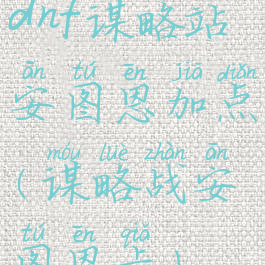 dnf谋略站
ān tú ēn jiā diǎn
安图恩加点
móu lüè zhàn ān
(谋略战安
tú ēn qiǎ
图恩卡)